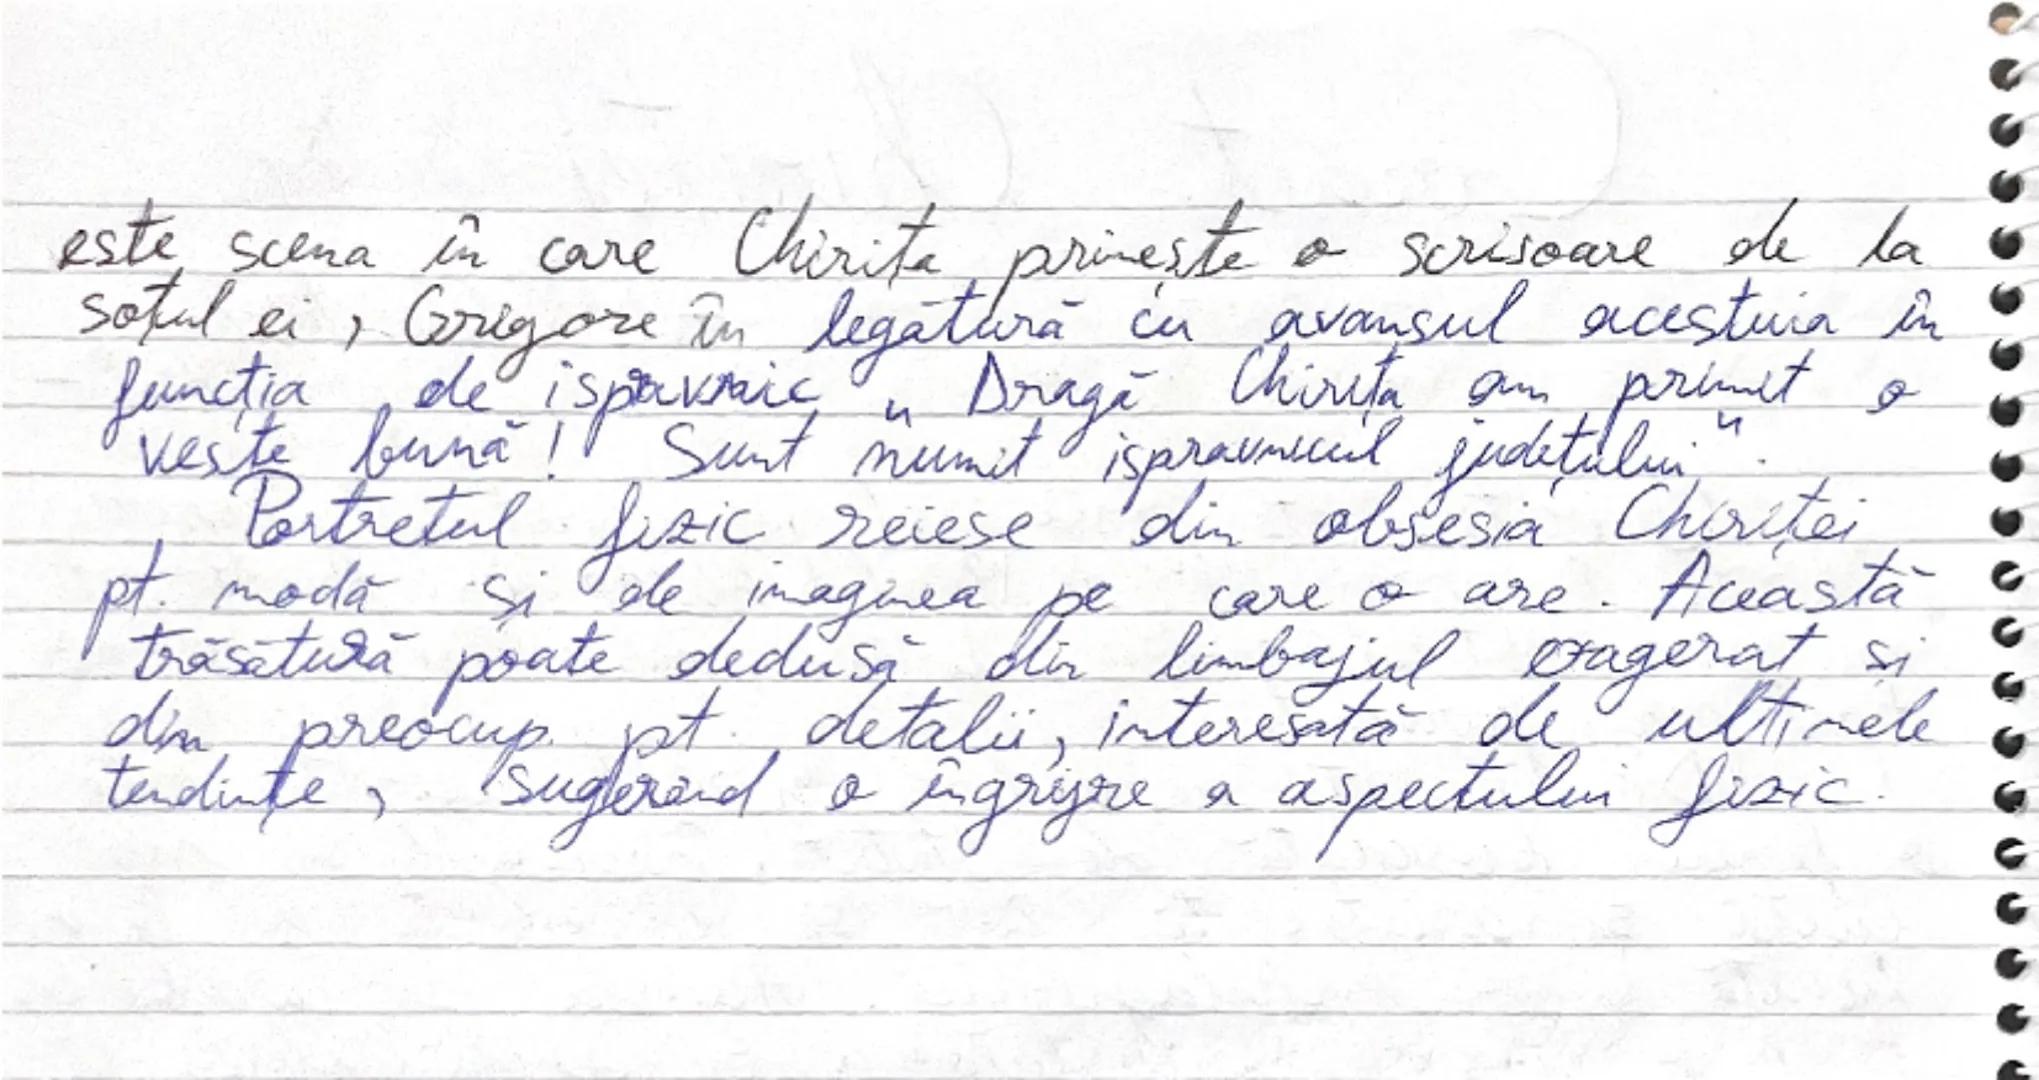 este scena în care Chirița primește o scrisoare de la
soțul ei, Grigore în legătură cu avansul acestuia în
funcția de ispravnic „Dragă Chirița am primit o
veste bună! Sunt numit ispravnicul județului".
Portretul fizic reiese din obsesia Chiriței
pt. modă și de imaginea pe care o are. Această
trăsătură poate dedusă din limbajul exagerat și
din preocup. pt. detalii, interesată de ultimele
tendințe, sugerând o îngrijire a aspectului fizic.